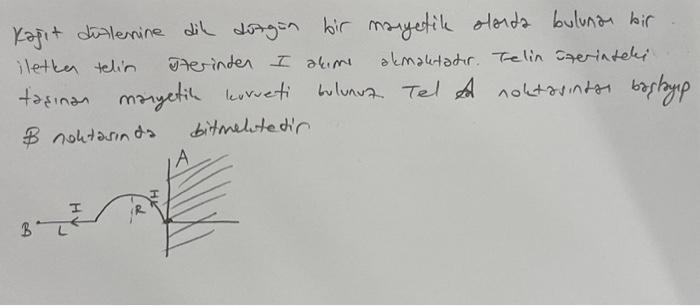 Kağıt düzlemine dik düzgün bir manyetik alanda bulunan bir
iletken telin üzerinden I akımı akmaktadır. Telin üzerindeki
taşınan manyetik kuvveti bulunuz Tel A noktasından başlayıp
B noktasında bitmektedir
A
I
I
R
B
L